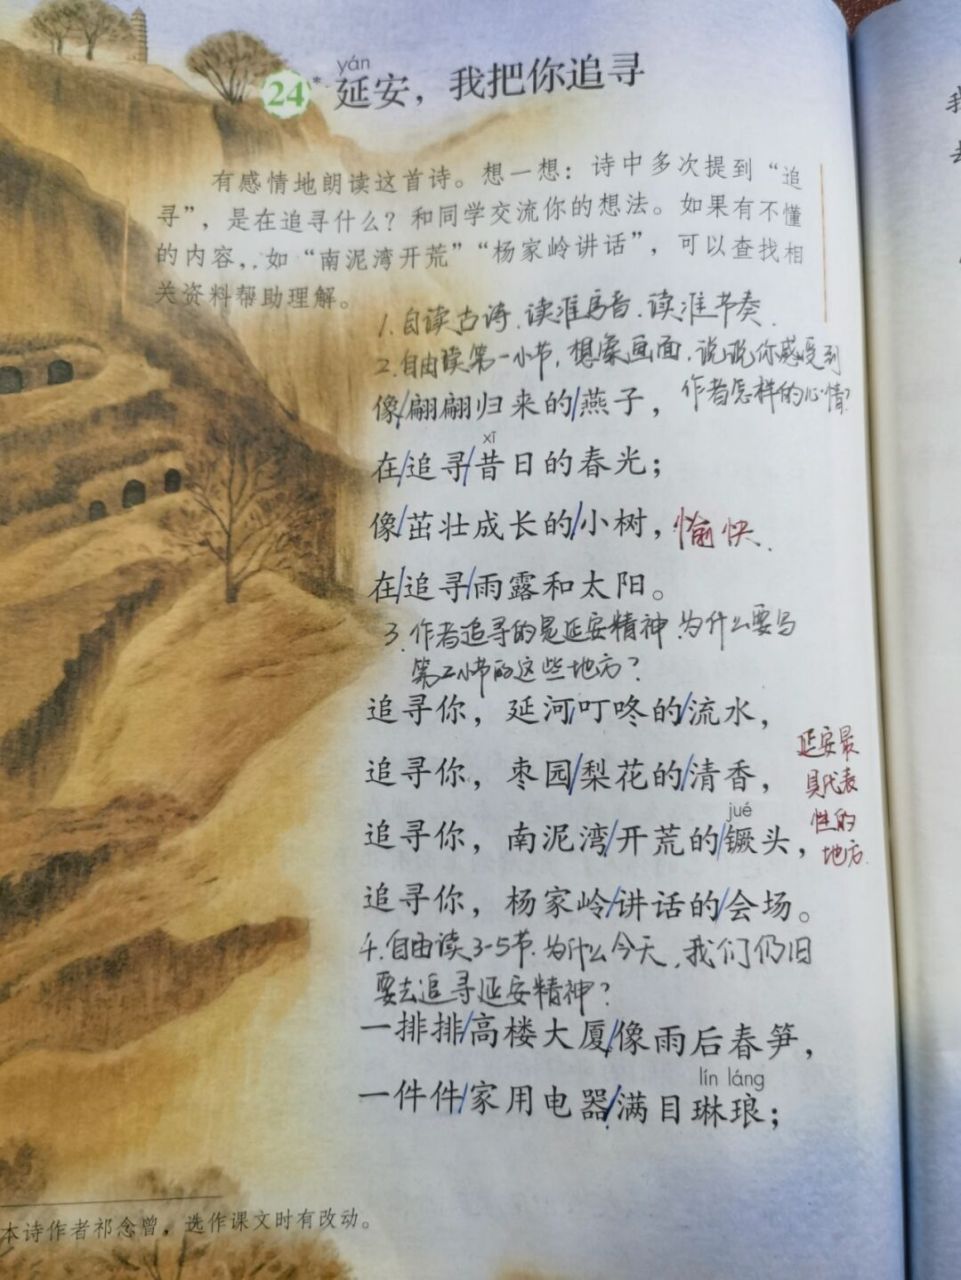 yán
24* 延安，我把你追寻
有感情地朗读这首诗。想一想：诗中多次提到“追
寻”，是在追寻什么？和同学交流你的想法。如果有不懂
的内容，如“南泥湾开荒”“杨家岭讲话”，可以查找相
关资料帮助理解。
1.自读古诗.读准字音.读准节奏.
2.自由读第一小节，想象画面，说说你感受到
作者怎样的心情？
像/翩翩归来的/燕子，
xī
在/追寻/昔日的春光；
像/茁壮成长的/小树，愉快.
在/追寻/雨露和太阳。
3.作者追寻的是延安精神.为什么要写
第2小节的这些地方？
追寻你，延河/叮咚的/流水，
追寻你，枣园/梨花的/清香，
延安最
具代表
性的
地方.
jué
追寻你，南泥湾/开荒的/镢头，
追寻你，杨家岭/讲话的/会场。
4.自由读3-5节.为什么今天，我们仍旧
要去追寻延安精神？
一排排/高楼大厦/像雨后春笋，
lín láng
一件件/家用电器/满目琳琅；
本诗作者祁念曾，选作课文时有改动。